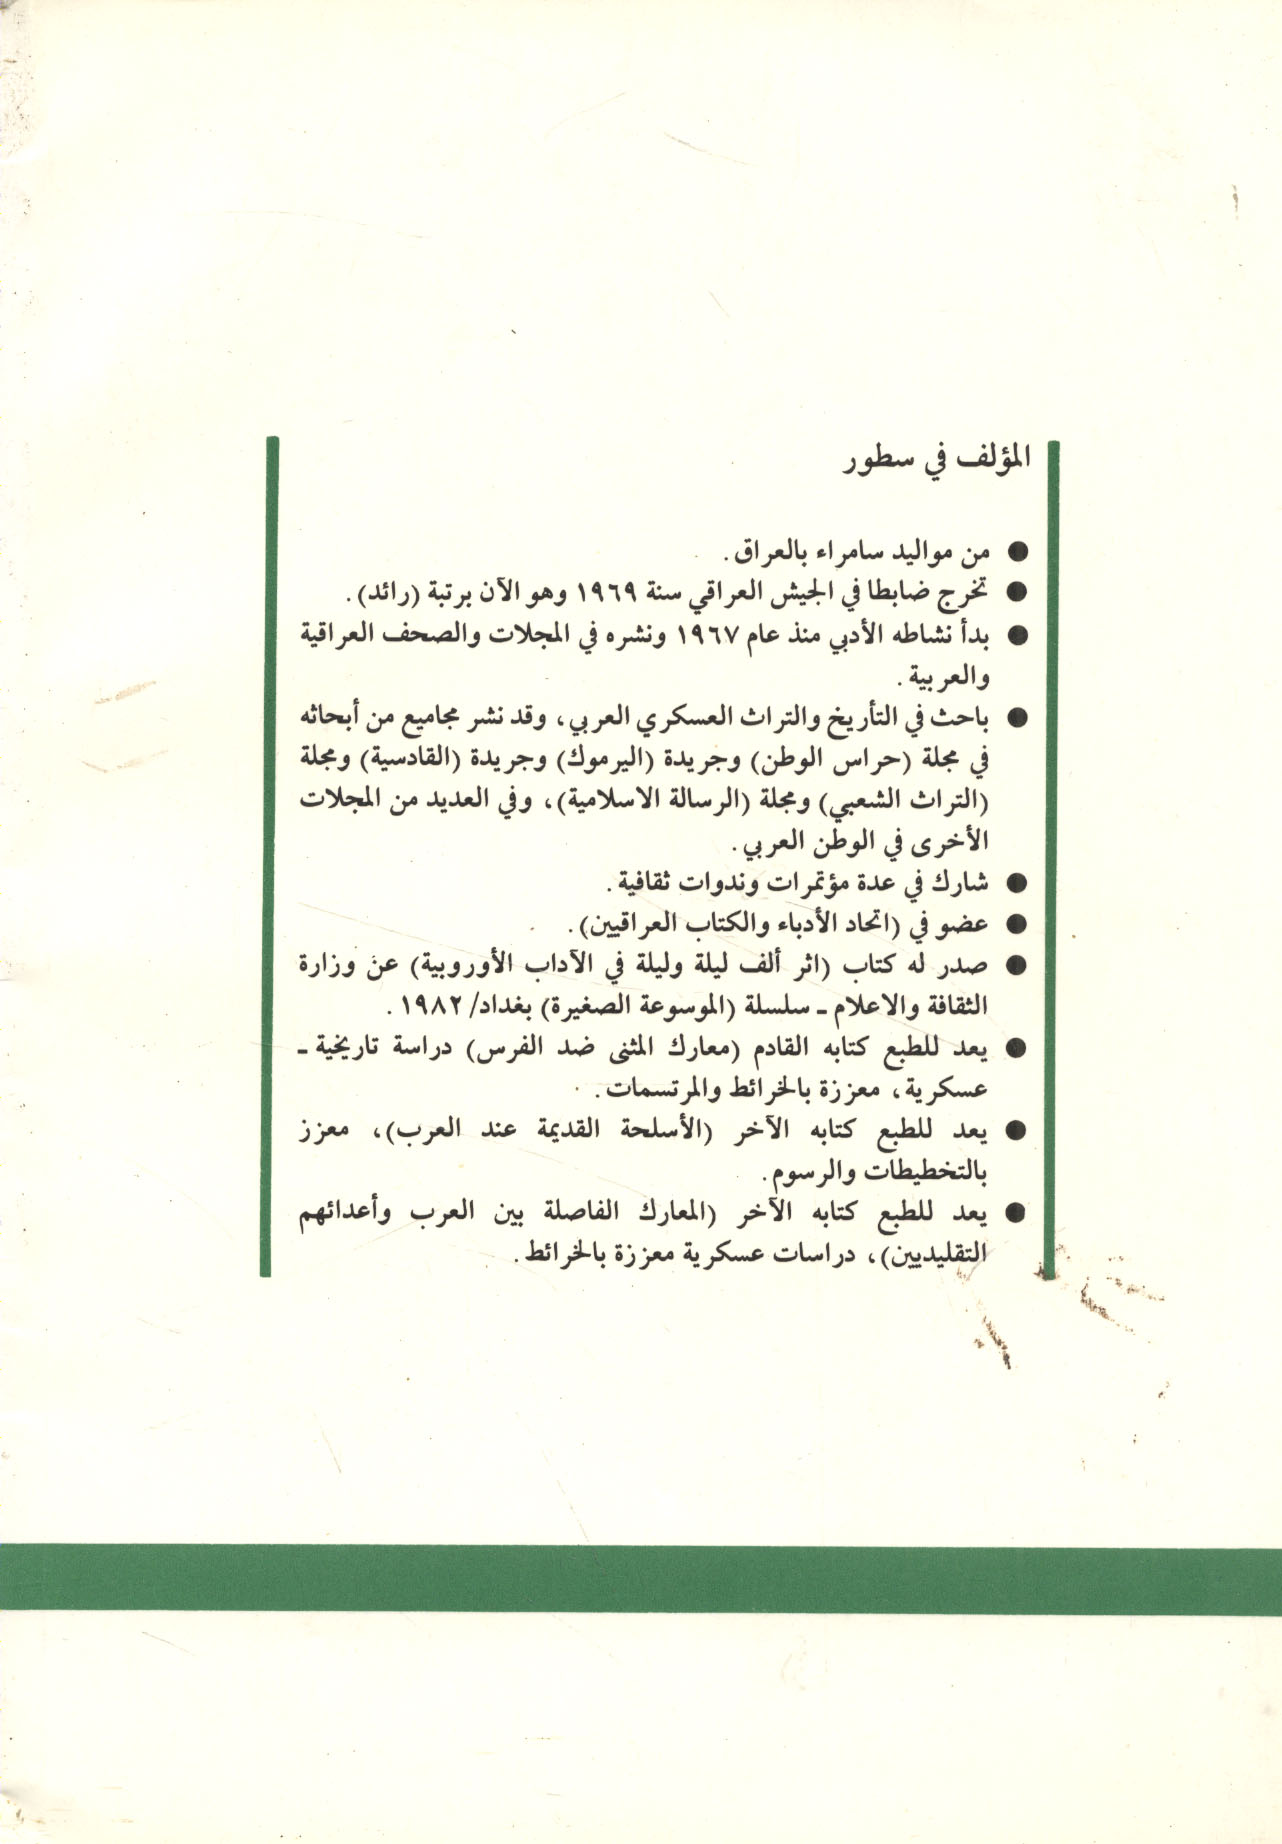 المؤلف في سطور
● من مواليد سامراء بالعراق.
● تخرج ضابطا في الجيش العراقي سنة ١٩٦٩ وهو الآن برتبة (رائد).
● بدأ نشاطه الأدبي منذ عام ١٩٦٧ ونشره في المجلات والصحف العراقية
والعربية.
● باحث في التأريخ والتراث العسكري العربي، وقد نشر مجاميع من أبحاثه
في مجلة (حراس الوطن) وجريدة (اليرموك) وجريدة (القادسية) ومجلة
(التراث الشعبي) ومجلة (الرسالة الاسلامية)، وفي العديد من المجلات
الأخرى في الوطن العربي.
● شارك في عدة مؤتمرات وندوات ثقافية.
● عضو في (اتحاد الأدباء والكتاب العراقيين).
● صدر له كتاب (اثر ألف ليلة وليلة في الآداب الأوروبية) عن وزارة
الثقافة والاعلام ـ سلسلة (الموسوعة الصغيرة) بغداد/ ١٩٨٢.
● يعد للطبع كتابه القادم (معارك المثنى ضد الفرس) دراسة تاريخية ـ
عسكرية، معززة بالخرائط والمرتسمات.
● يعد للطبع كتابه الآخر (الأسلحة القديمة عند العرب)، معزز
بالتخطيطات والرسوم.
● يعد للطبع كتابه الآخر (المعارك الفاصلة بين العرب وأعدائهم
التقليديين)، دراسات عسكرية معززة بالخرائط.